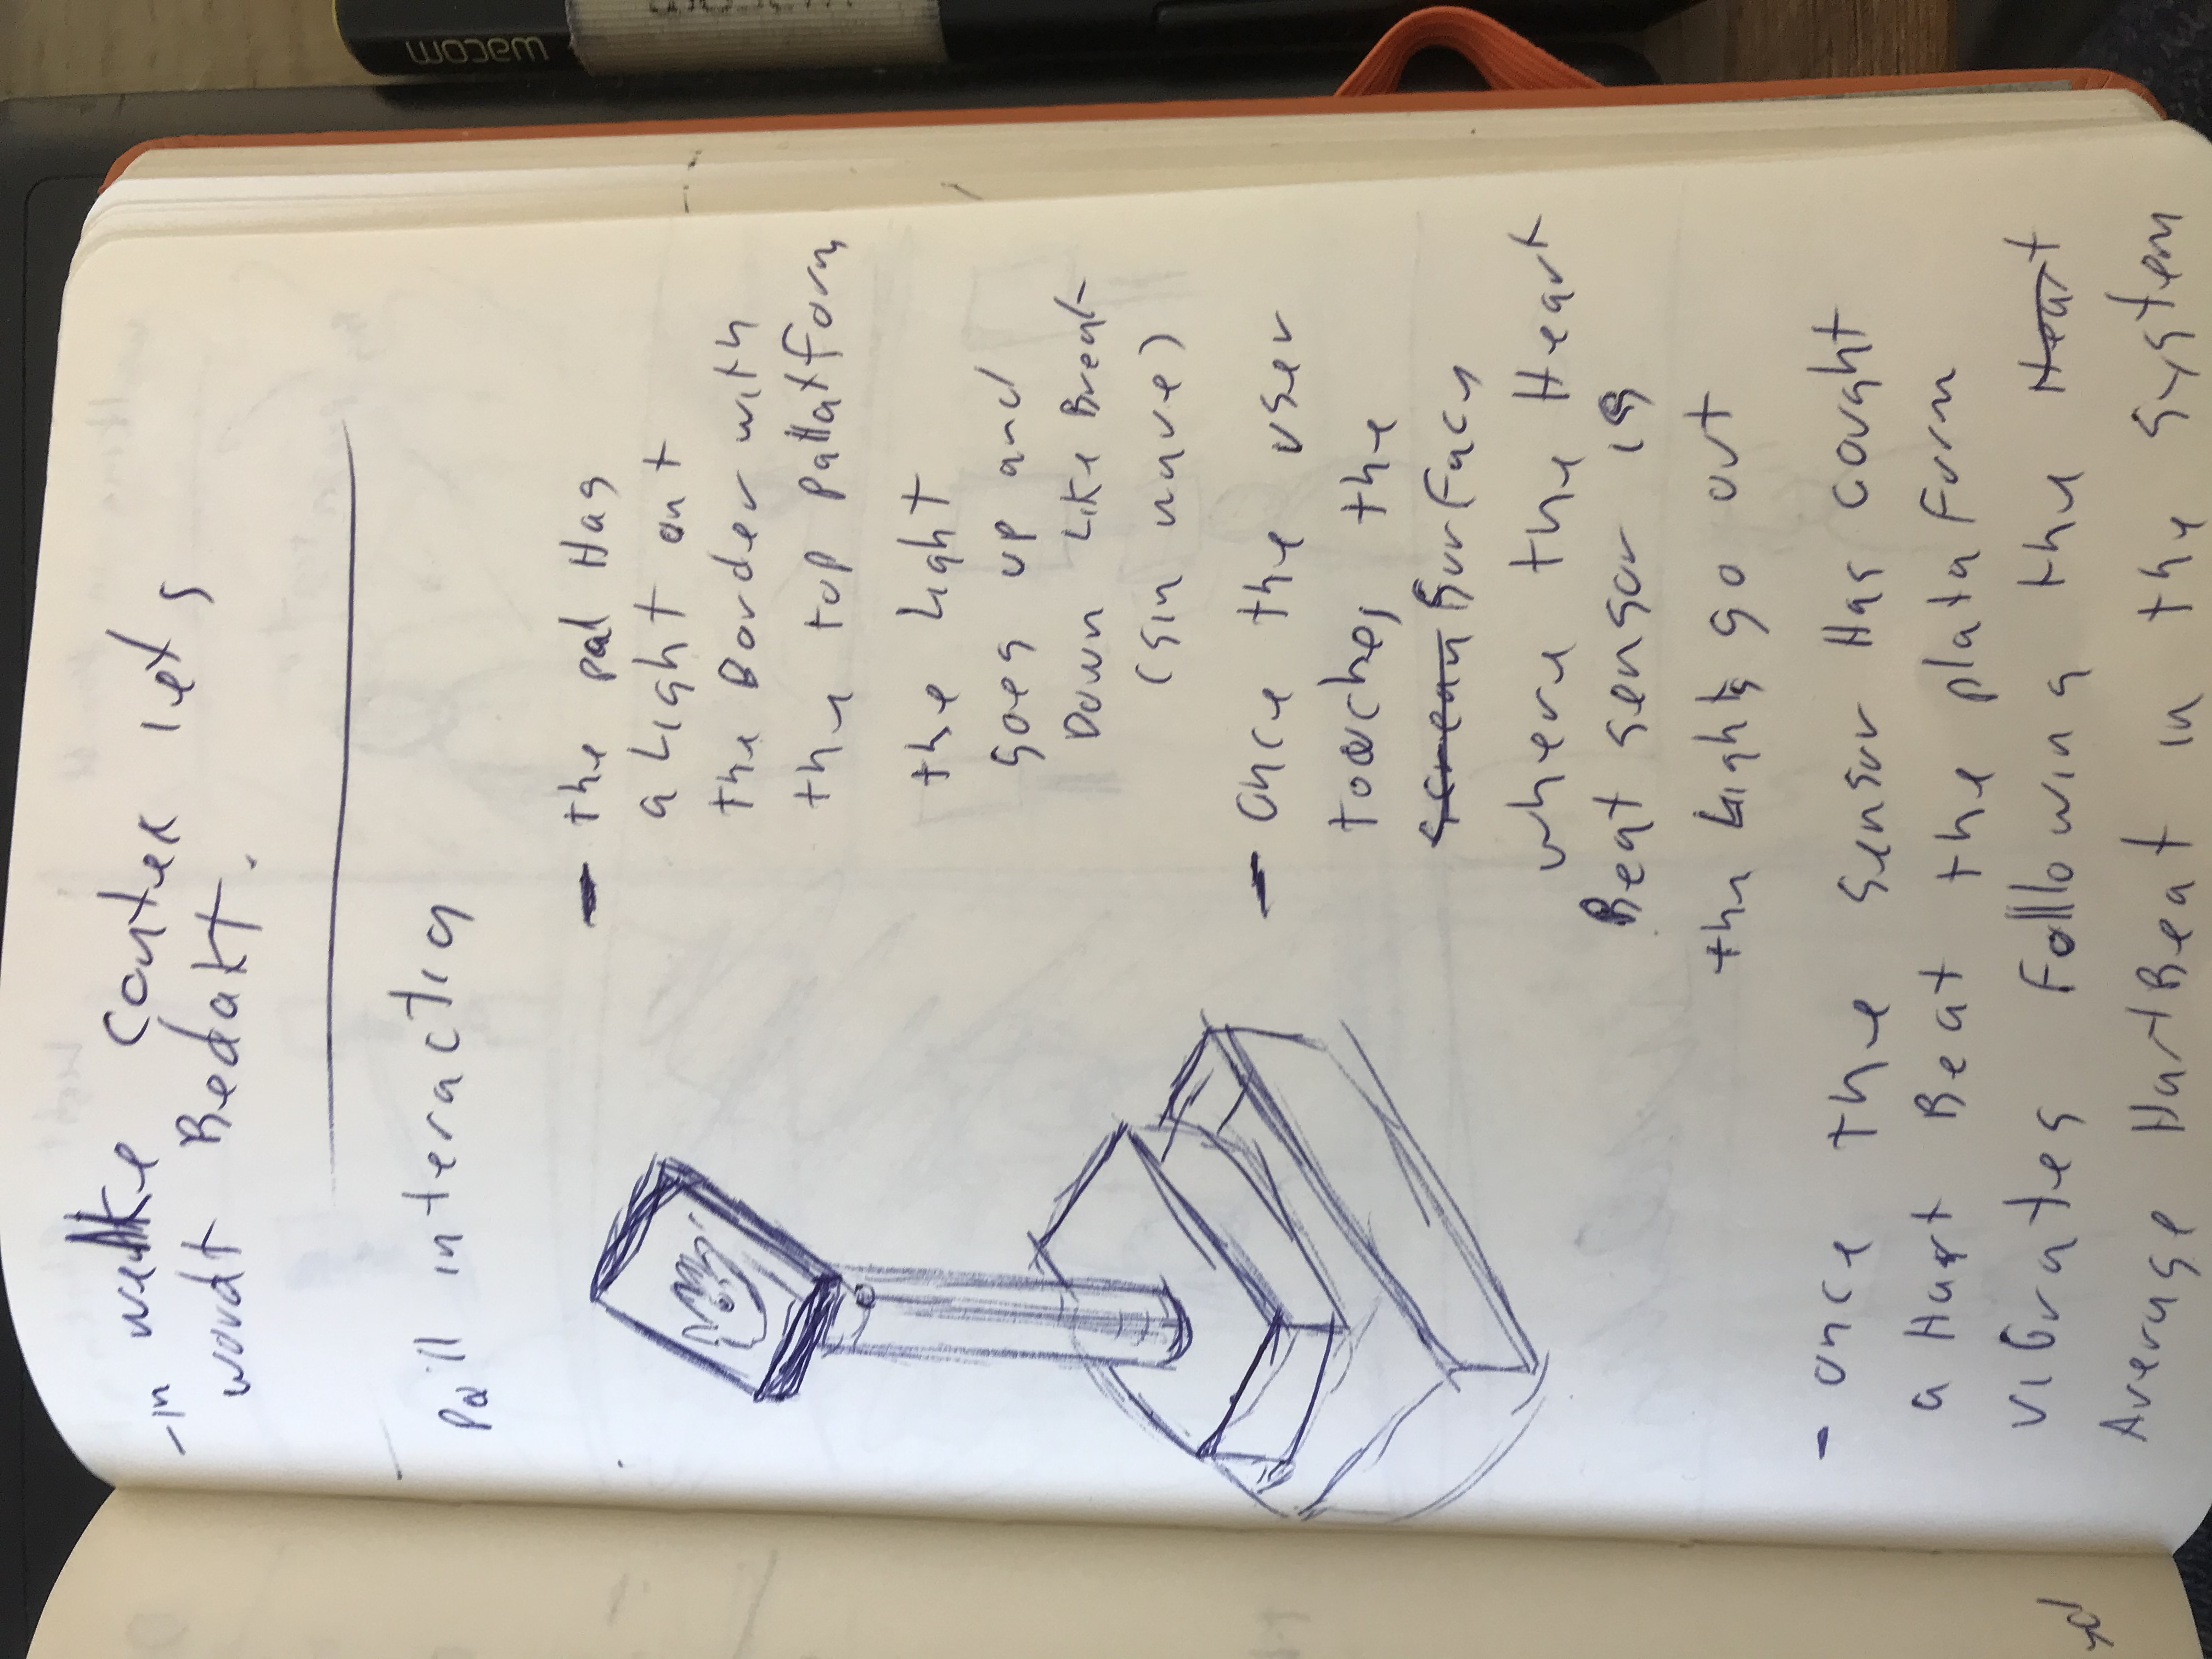 - in welke contex iets
wordt Bedakt.
Pall interactig
- the pal Has
a Light ont
the Border with
the top pallatform
the Light
goes up and
Down Like Breat
(sin wave)
- once the user
touches the
screan Surface
where the Heart
Beat sensor is
the Lights go out
- once the sensor Has cought
a Hart Beat the plataform
vibrates Following the Heart
Average HartBeat in the system
wacom